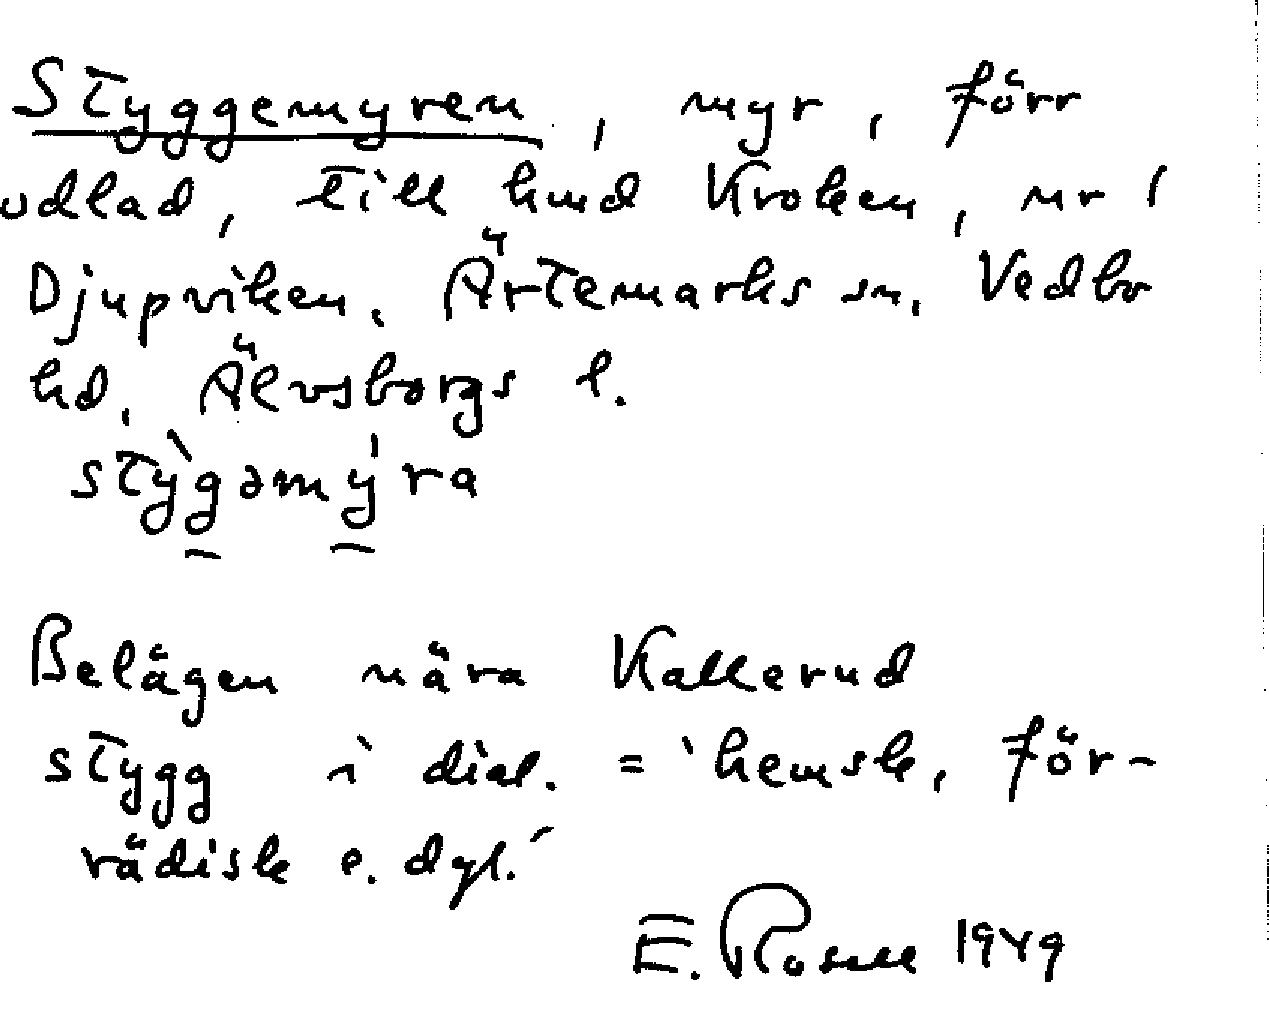 Styggemyren, myr, förr
odlad, till hmd Kroken, nr 1
Djupviken, Ärtemarks sn, Vedbo
hd, Älvsborgs l.
stỳgəmýra
Belägen nära Kallerud
stygg i dial. = 'hemsk, för-
rädisk e. dyl.'
E. Rosell 1949